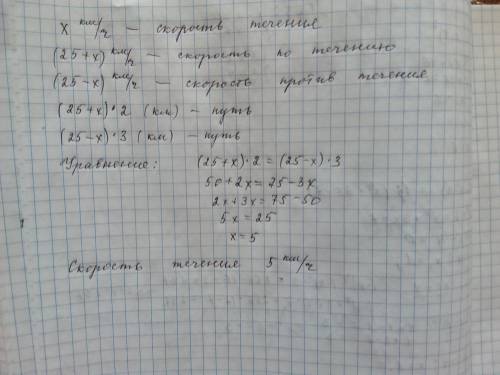 x км/ч — скорость течения
(25+x) км/ч — скорость по течению
(25-x) км/ч — скорость против течения
(25+x)·2 (км) — путь
(25-x)·3 (км) — путь
Уравнение: (25+x)·2 = (25-x)·3
50+2x = 75-3x
2x+3x = 75-50
5x = 25
x = 5
Скорость течения 5 км/ч